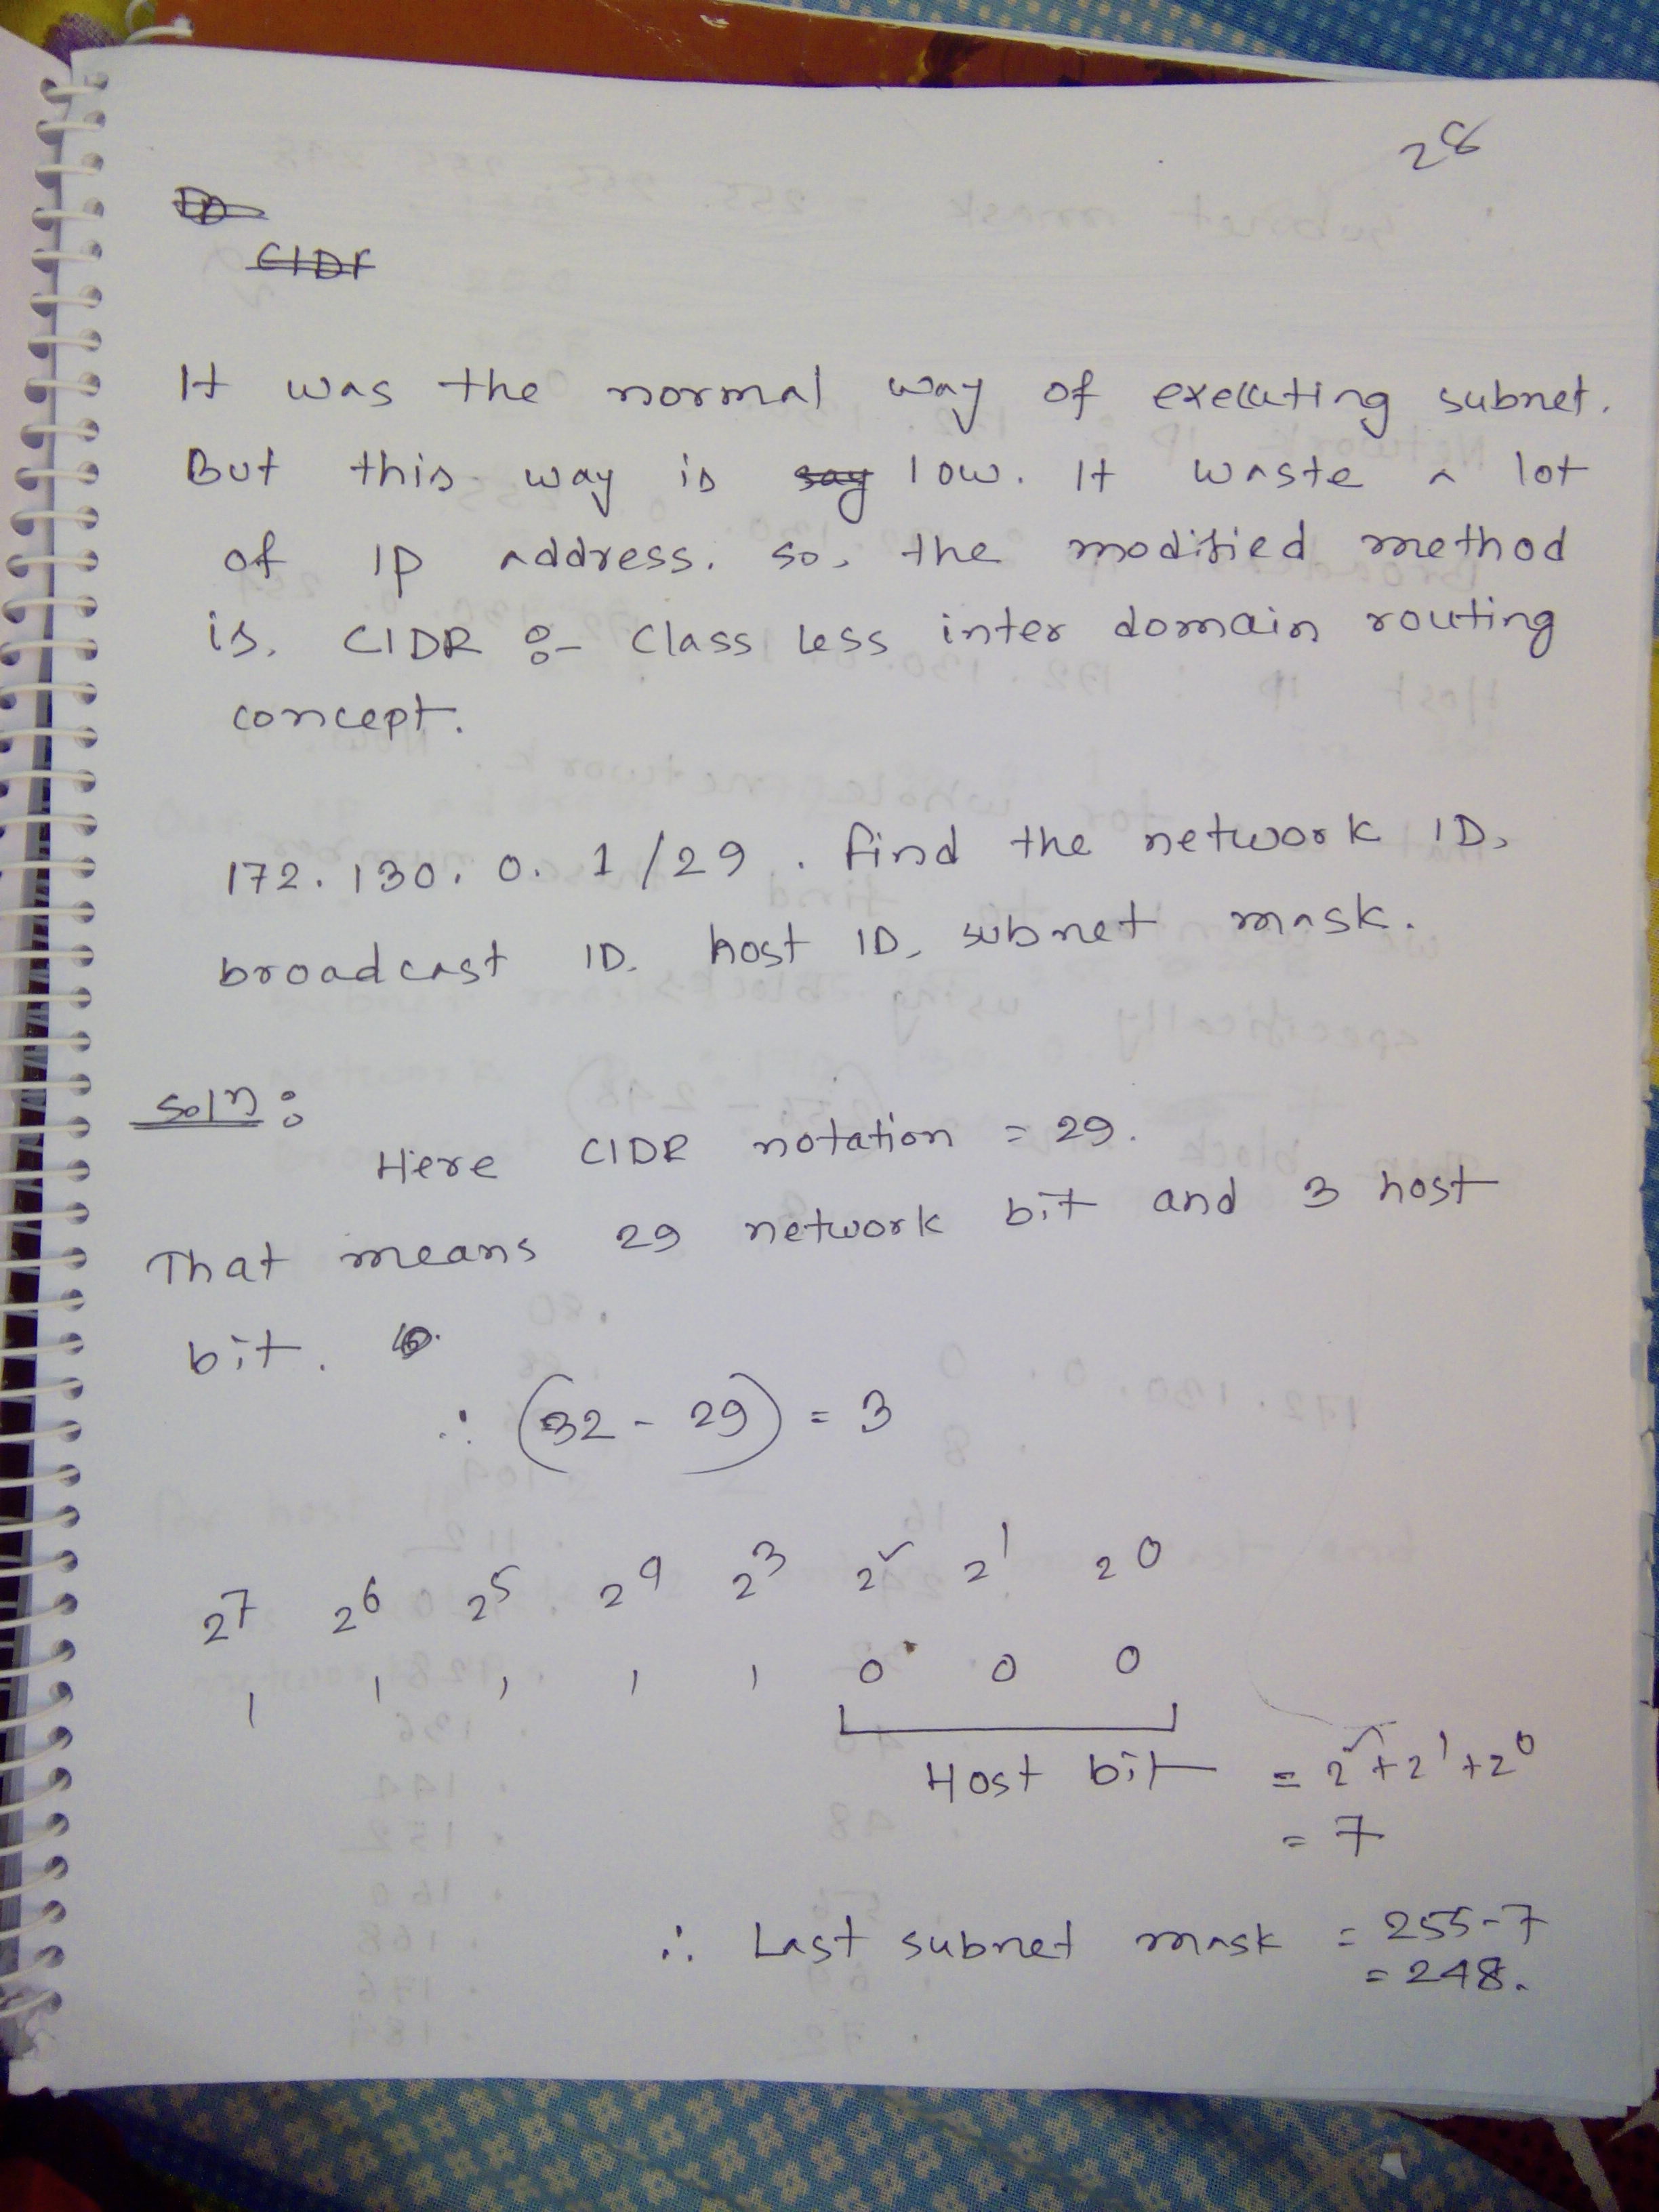 28
CIDr
It was the normal way of execcuting subnet.
But this way is say low. It waste a lot
of IP address. so, the modified method
is. CIDR :- Class Less inter domain routing
concept.
172.130.0.1/29. find the network ID,
broadcast ID. host ID, subnet mask.
Soln:
Here CIDR notation = 29.
That means 29 network bit and 3 host
bit.
∴ (32 - 29) = 3
2⁷ 2⁶ 2⁵ 2⁴ 2³ 2² 2¹ 2⁰
1 1 1 1 1 0 0 0
Host bit = 2² + 2¹ + 2⁰
= 7
∴ Last subnet mask = 255-7
= 248.